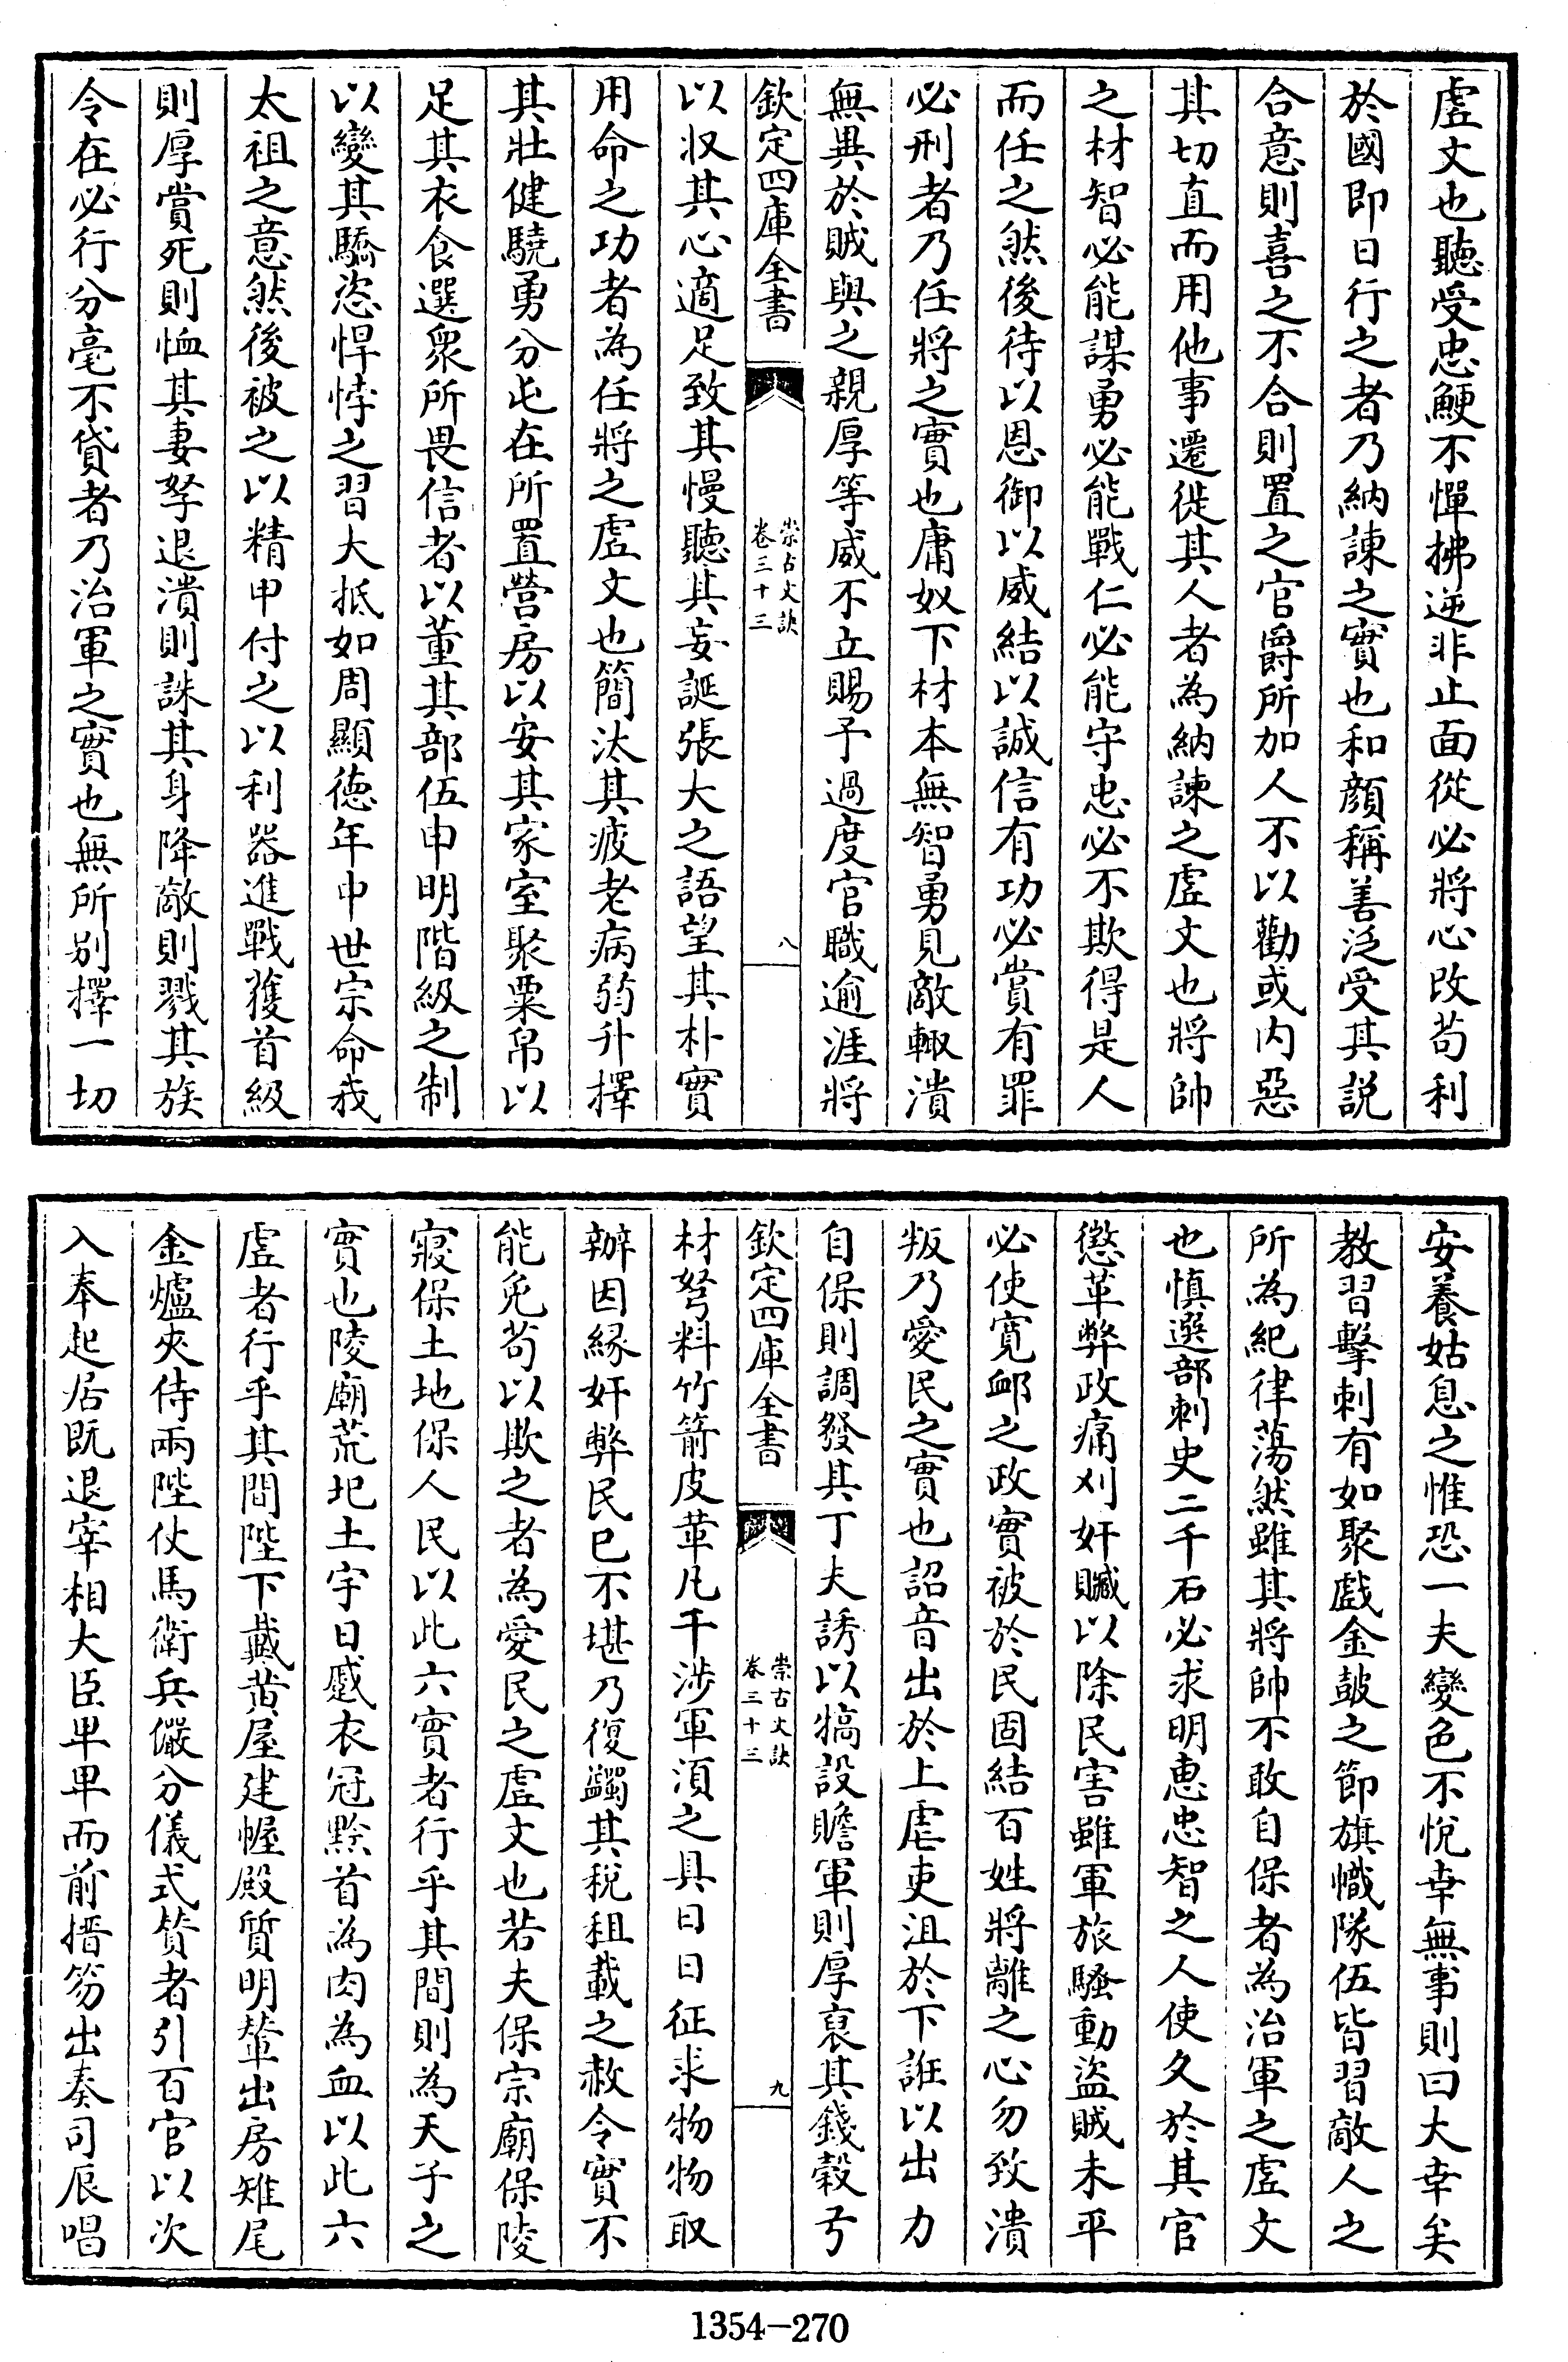 虛文也聽受忠鯁不憚拂逆非止面從必將心改苟利
於國即日行之者乃納諫之實也和顔稱善泛受其説
合意則喜之不合則置之官爵所加人不以勸或内惡
其切直而用他事遷徙其人者為納諫之虛文也將帥
之材智必能謀勇必能戰仁必能守忠必不欺得是人
而任之然後待以恩御以威結以誠信有功必賞有罪
必刑者乃任將之實也庸奴下材本無智勇見敵輙潰
無異於賊與之親厚等威不立賜予過度官職逾涯將
欽定四庫全書
崇古文訣
卷三十三
八
以収其心適足致其慢聽其妄誕張大之語望其朴實
用命之功者為任將之虛文也簡汰其疲老病弱升擇
其壯健驍勇分屯在所置營房以安其家室聚粟帛以
足其衣食選衆所畏信者以董其部伍申明階級之制
以變其驕恣悍悖之習大抵如周顯德年中世宗命我
太祖之意然後被之以精甲付之以利器進戰獲首級
則厚賞死則恤其妻孥退潰則誅其身降敵則戮其族
令在必行分毫不貸者乃治軍之實也無所别擇一切
安養姑息之惟恐一夫變色不悅幸無事則曰大幸矣
教習擊刺有如聚戲金鼓之節旗幟隊伍皆習敵人之
所為紀律蕩然雖其將帥不敢自保者為治軍之虛文
也慎選部刺史二千石必求明惠忠智之人使久於其官
懲革弊政痛刈奸贓以除民害雖軍旅騷動盜賊未平
必使寛衈之政實被於民固結百姓將離之心勿致潰
叛乃愛民之實也詔音出於上虐吏沮於下誑以出力
自保則調發其丁夫誘以犒設贍軍則厚裒其錢穀弓
欽定四庫全書
崇古文訣
卷三十三
九
材弩料竹箭皮革凡干涉軍湏之具日日征求物物取
辦因縁奸弊民已不堪乃復蠲其稅租載之赦令實不
能免苟以欺之者為愛民之虛文也若夫保宗廟保陵
寢保土地保人民以此六實者行乎其間則為天子之
實也陵廟荒圯土宇日蹙衣冠黔首為肉為血以此六
虛者行乎其間陛下戴黄屋建幄殿質明輦出房雉尾
金爐夾侍兩陛仗馬衛兵儼分儀式賛者引百官以次
入奉起居既退宰相大臣卑卑而前搢笏出奏司辰唱
1354-270